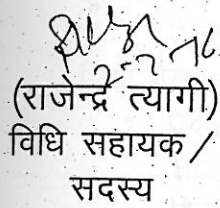 (राजेन्द्र त्यागी)
विधि सहायक /
सदस्य